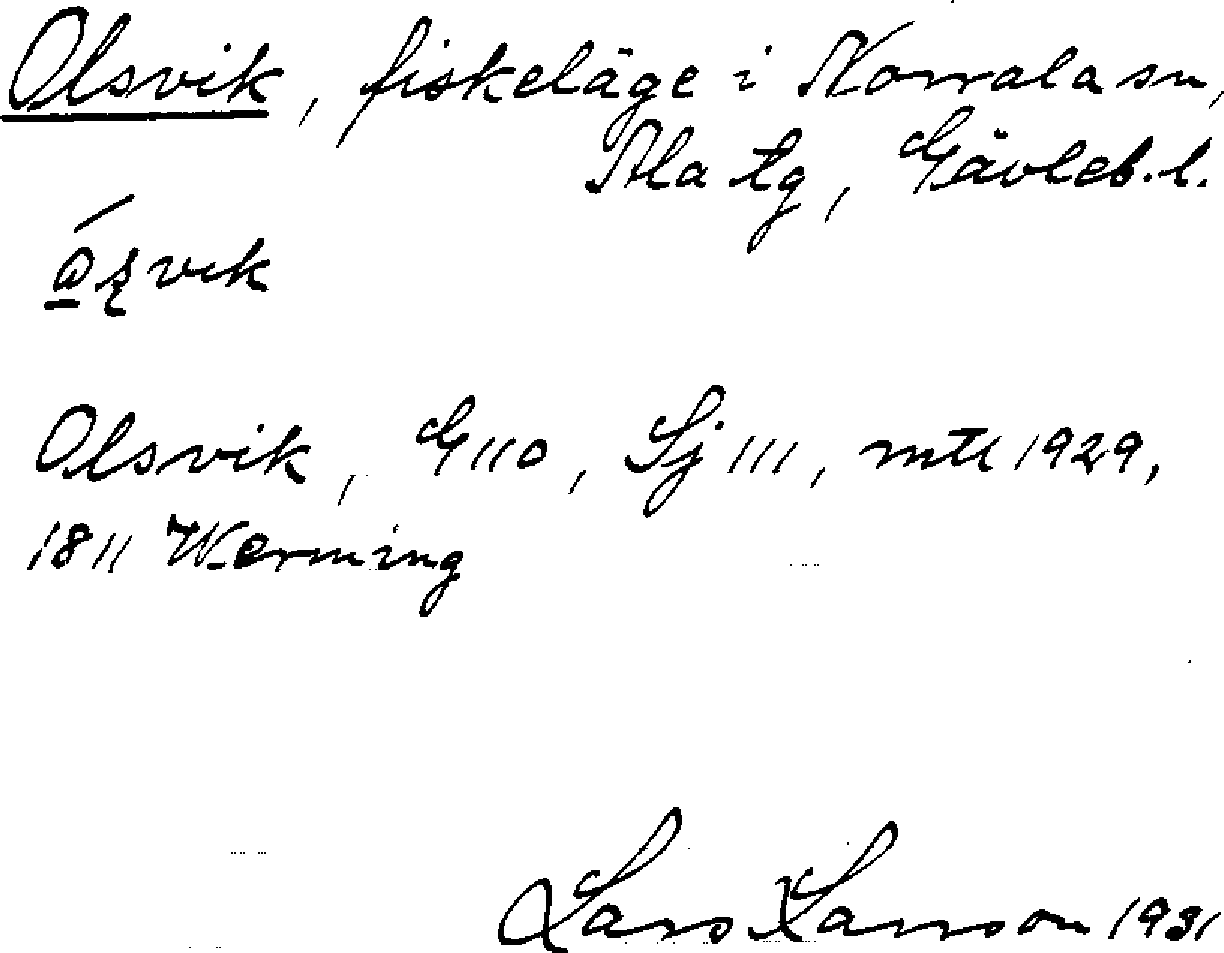 Olsvik, fiskeläge i Norrala sn,
Ala tg, Gävleb. l.
vik
Olsvik, G 110, Sj 111, mtl 1929,
1811 Werming
Lars Larsson 1931